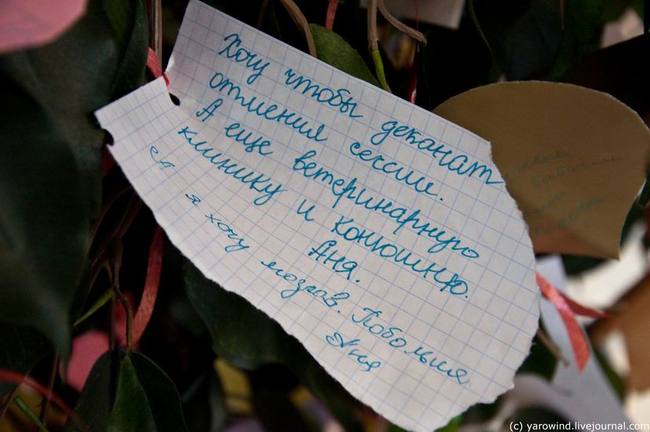 Хочу чтобы деканат
отменил сессию.
А еще ветеринарную
клинику и конюшню.
Аня.
я хочу мозгов. Побольше
Аня
(c) yarowind.livejournal.com